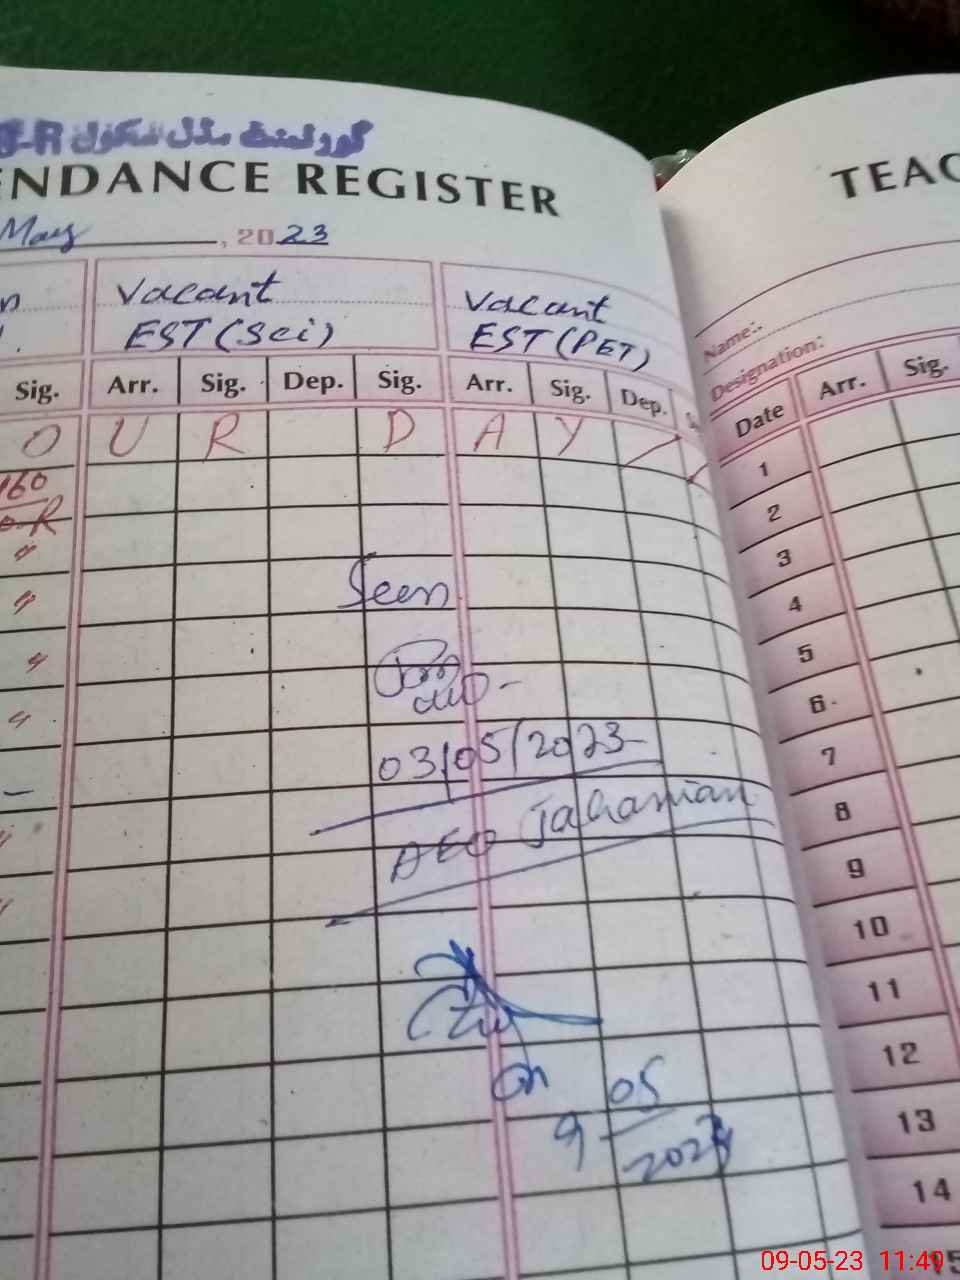 -R گورنمنٹ مڈل سکول
ENDANCE REGISTER
May, 2023
Vacant
EST (Sci)
Vacant
EST (PET)
Sig. Arr. Sig. Dep. Sig. Arr. Sig. Dep.
O U R D A Y
160
Seen
03/05/2023
AEO Jahanian
on
9 05
TEAC
Name:
Designation:
Date Arr. Sig.
1
2
3
4
5
6
7
8
9
10
11
12
13
14
15
09-05-23 11:49